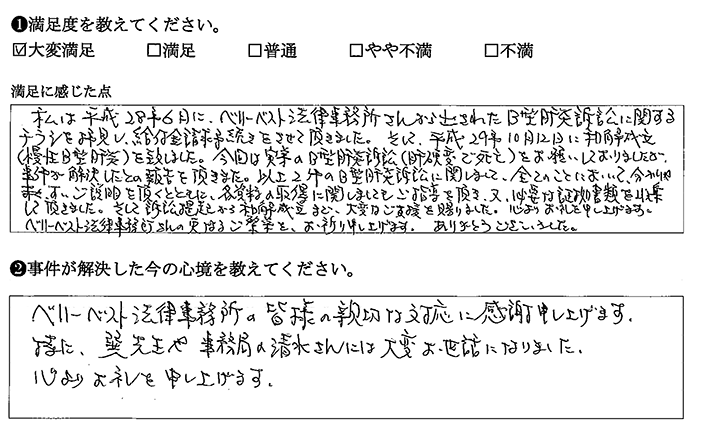 ❶満足度を教えてください。
☑大変満足 □満足 □普通 □やや不満 □不満
満足に感じた点
私は平成28年6月に、ベリーベスト法律事務所さんから出されたB型肝炎訴訟に関する
チラシを拝見し、給付金請求手続きをさせて頂きました。そして、平成29年10月12日に和解成立
(慢性B型肝炎)を致しました。今回は実弟のB型肝炎訴訟(肝硬変で死亡)をお願いしておりましたが、
事件が解決したとの報告を頂きました。以上2件のB型肝炎訴訟に関しまして、全てのことにおいて、分かり
やすいご説明を頂くとともに、各資料の取得に関しましてもご指導を頂き、又、必要な証拠書類を収集
して頂きました。そして訴訟提起から和解成立まで、大変なご支援を賜りました。心よりお礼を申し上げます。
ベリーベスト法律事務所さんの更なるご繁栄を、お祈り申し上げます。ありがとうございました。
❷事件が解決した今の心境を教えてください。
ベリーベスト法律事務所の皆様の親切な対応に感謝申し上げます。
特に、巽先生や事務局の清水さんには大変お世話になりました。
心よりお礼を申し上げます。